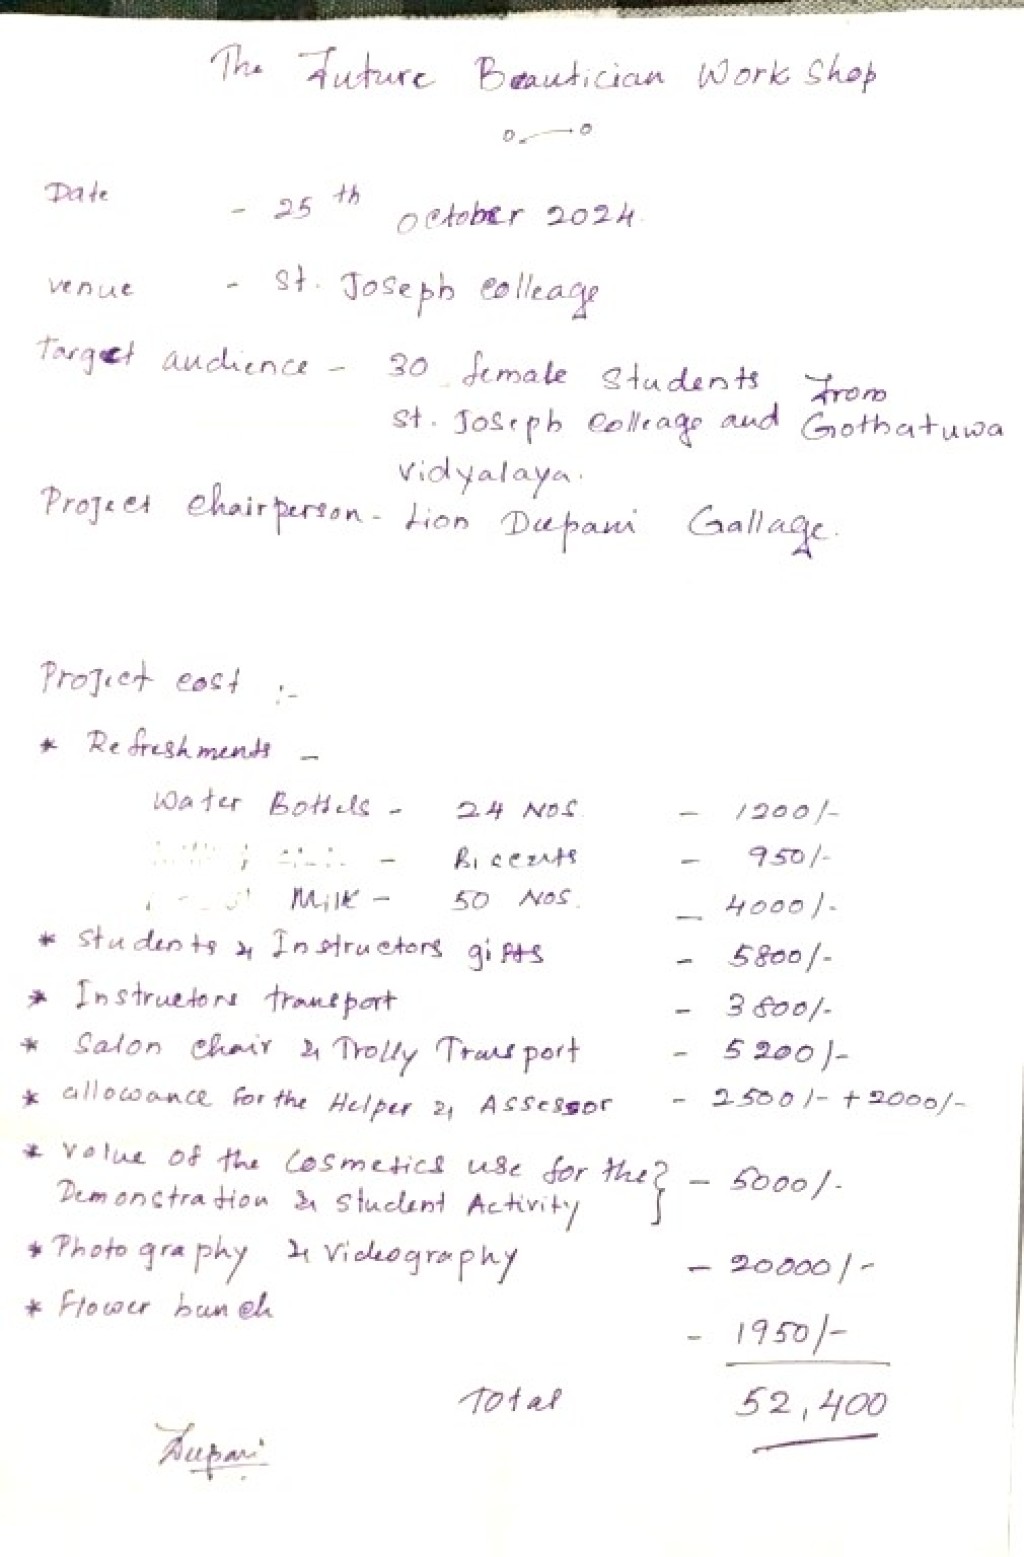 The Future Beautician Work Shop
Date - 25th October 2024
venue - St. Joseph colleage
Target audience - 30 female students From
St. Joseph Colleage and Gothatuwa
vidyalaya.
Project chairperson - Lion Deepani Gallage.
Project cost :-
* Refreshments -
Water Bottels - 24 Nos. - 1200/-
- Biscuits - 950/-
Milk - 50 Nos. - 4000/-
* Students & Instructors gifts - 5800/-
* Instructors transport - 3800/-
* Salon chair & Trolly Transport - 5200/-
* allowance for the Helper & Assessor - 2500/- + 2000/-
* value of the Cosmetics use for the } - 5000/-
Demonstration & Student Activity
* Photography & videography - 20000/-
* Flower bunch
- 1950/-
Total 52,400
Deepani